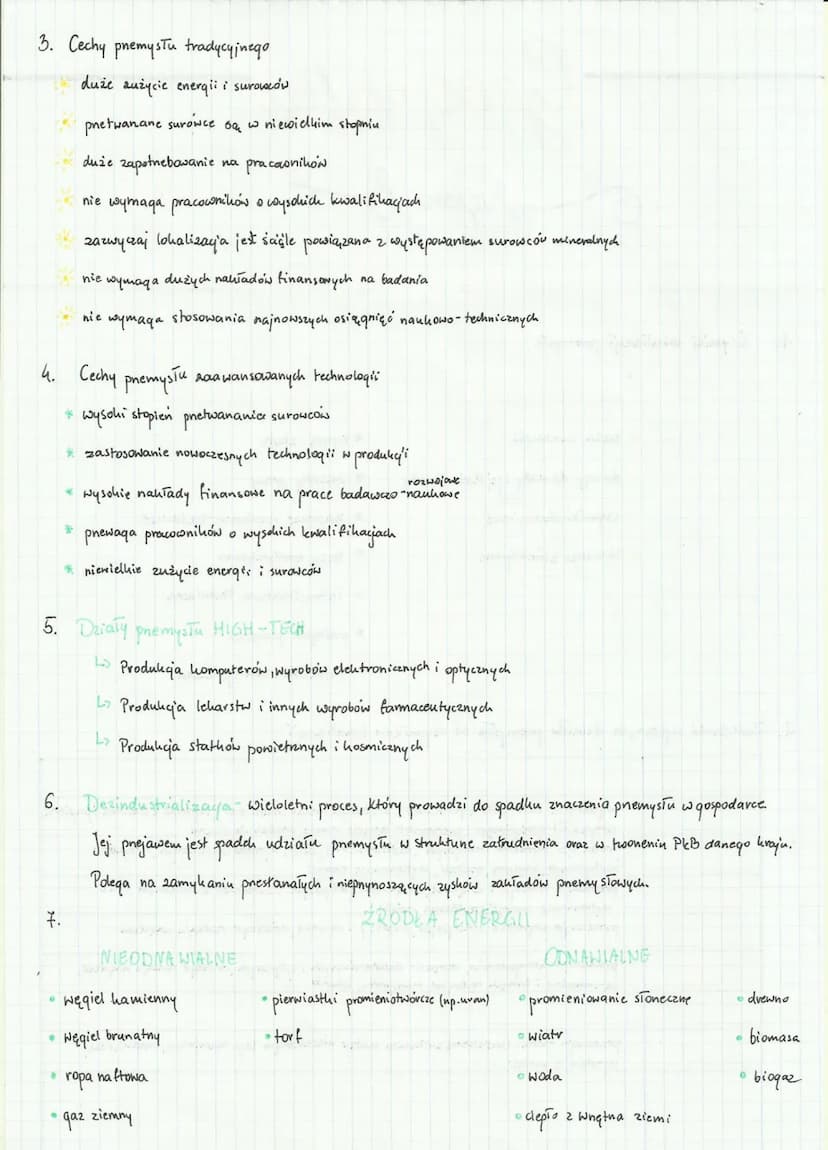 3. Cechy przemysłu tradycyjnego
duże zużycie energii i surowców
przetwarzane surowce są w niewielkim stopniu
duże zapotrzebowanie na pracowników
nie wymaga pracowników o wysokich kwalifikacjach
zazwyczaj lokalizacja jest ściśle powiązana z występowaniem surowców mineralnych
nie wymaga dużych nakładów finansowych na badania
nie wymaga stosowania najnowszych osiągnięć naukowo-technicznych
4. Cechy przemysłu zaawansowanych technologii
* wysoki stopień przetwarzania surowców
* zastosowanie nowoczesnych technologii w produkcji
rozwojowe
* wysokie nakłady finansowe na prace badawczo-naukowe
* przewaga pracowników o wysokich kwalifikacjach
* niewielkie zużycie energii i surowców
5. Działy przemysłu HIGH-TECH
↳ Produkcja komputerów, wyrobów elektronicznych i optycznych
↳ Produkcja lekarstw i innych wyrobów farmaceutycznych
↳ Produkcja statków powietrznych i kosmicznych
6. Dezindustrializacja - wieloletni proces, który prowadzi do spadku znaczenia przemysłu w gospodarce.
Jej przejawem jest spadek udziału przemysłu w strukturze zatrudnienia oraz w tworzeniu PKB danego kraju.
Polega na zamykaniu przestarzałych i nieprzynoszących zysków zakładów przemysłowych.
7. ŹRÓDŁA ENERGII
NIEODNAWIALNE ODNAWIALNE
• węgiel kamienny • pierwiastki promieniotwórcze (np. uran) • promieniowanie słoneczne • drewno
• węgiel brunatny • torf • wiatr • biomasa
• ropa naftowa • woda • biogaz
• gaz ziemny • ciepło z wnętrza ziemi